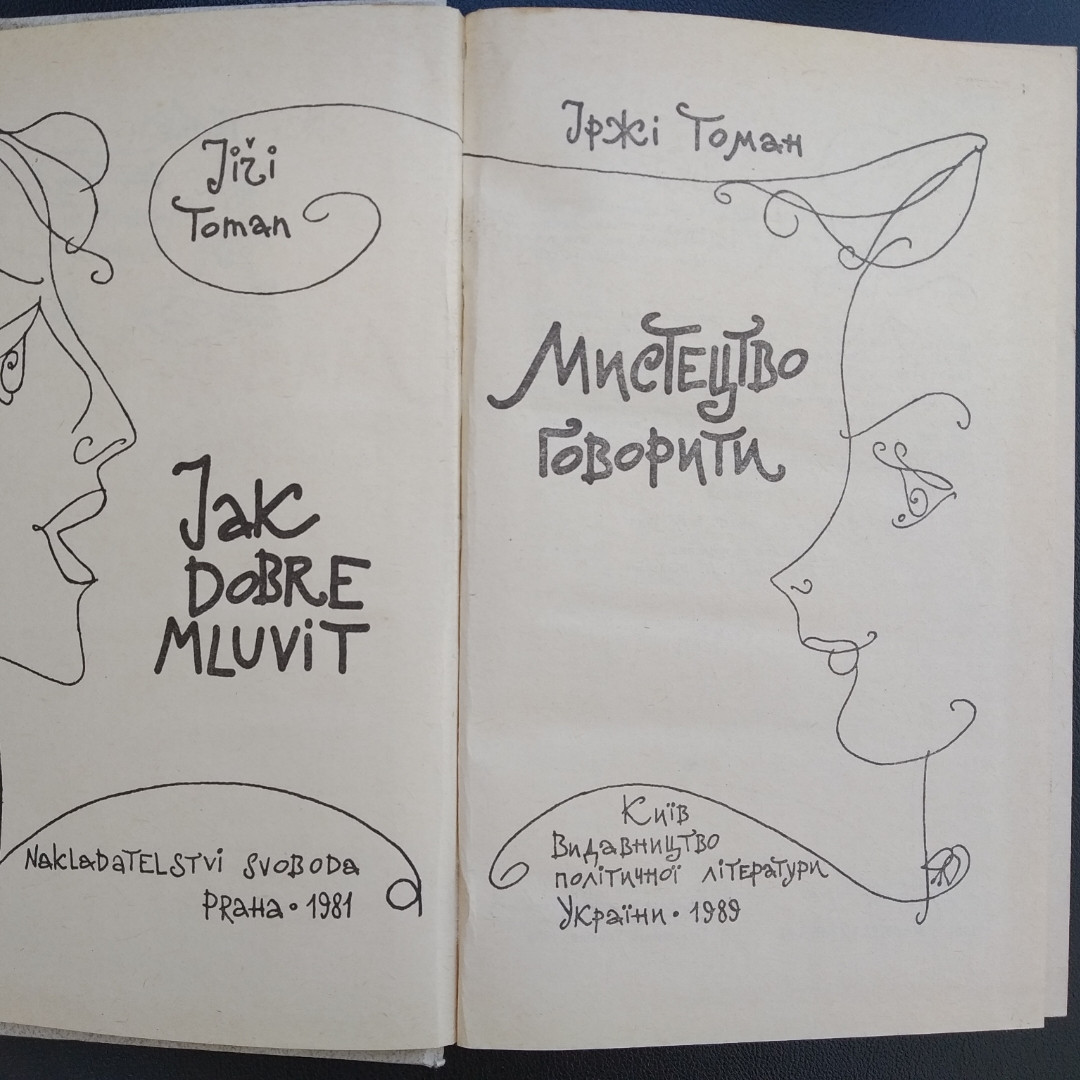 Jiři
Toman
Jak
DOBRE
MLUVIT
NakLaDaTELSTVi SVOBODa
PRaHa • 1981
Іржі Томан
Мистецтво
говорити
Київ
Видавництво
політичної літератури
України • 1989